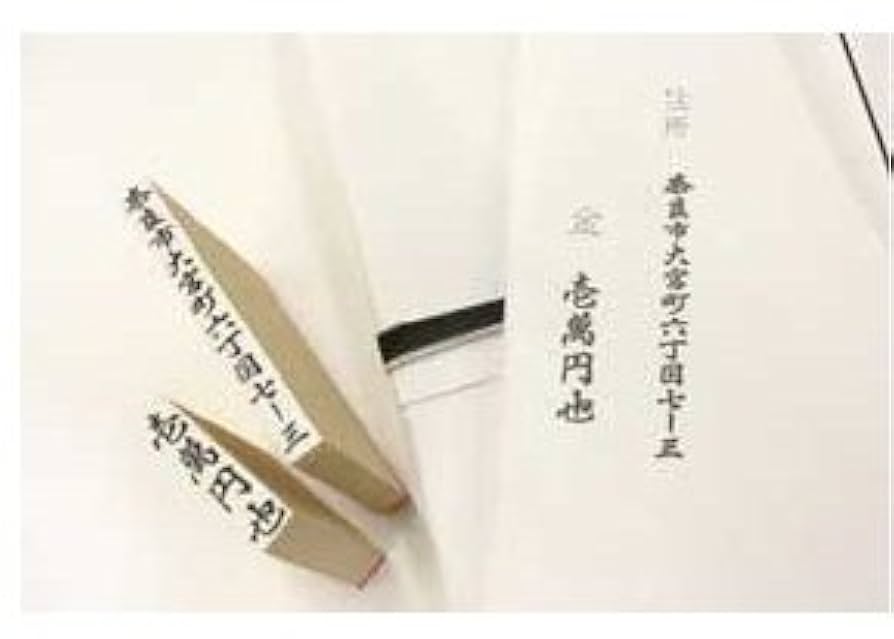 住所 奈良市大宮町六丁目七ー三
金 壱萬円也
奈良市大宮町六丁目七ー三
壱萬円也